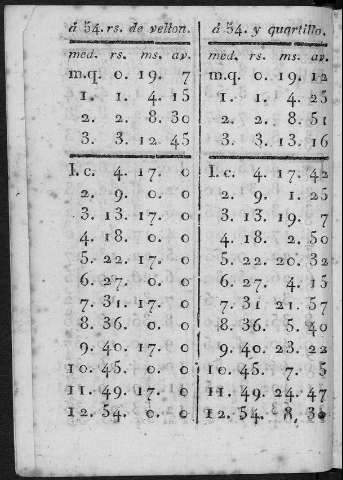 á 54. rs. de vellon.
med. rs. ms. av.
m.q. 0. 19. 7
1. 1. 4. 15
2. 2. 8. 30
3. 3. 12 45
1. c. 4. 17. 0
2. 9. 0. 0
3. 13. 17. 0
4. 18. 0. 0
5. 22. 17. 0
6. 27. 0. 0
7. 31. 17. 0
8. 36. 0. 0
9. 40. 17. 0
10. 45. 0. 0
11. 49. 17. 0
12. 54. 0. 0
á 54. y quartillo.
med. rs. ms. av.
m.q. 0. 19. 12
1. 1. 4. 25
2. 2. 8. 51
3. 3. 13. 16
1. c. 4. 17. 42
2. 9. 1. 25
3. 13. 19. 7
4. 18. 2. 50
5. 22. 20. 32
6. 27. 4. 15
7. 31 21. 57
8. 36. 5. 40
9. 40. 23. 22
10. 45. 7. 5
11. 49. 24. 47
12. 54. 8. 30